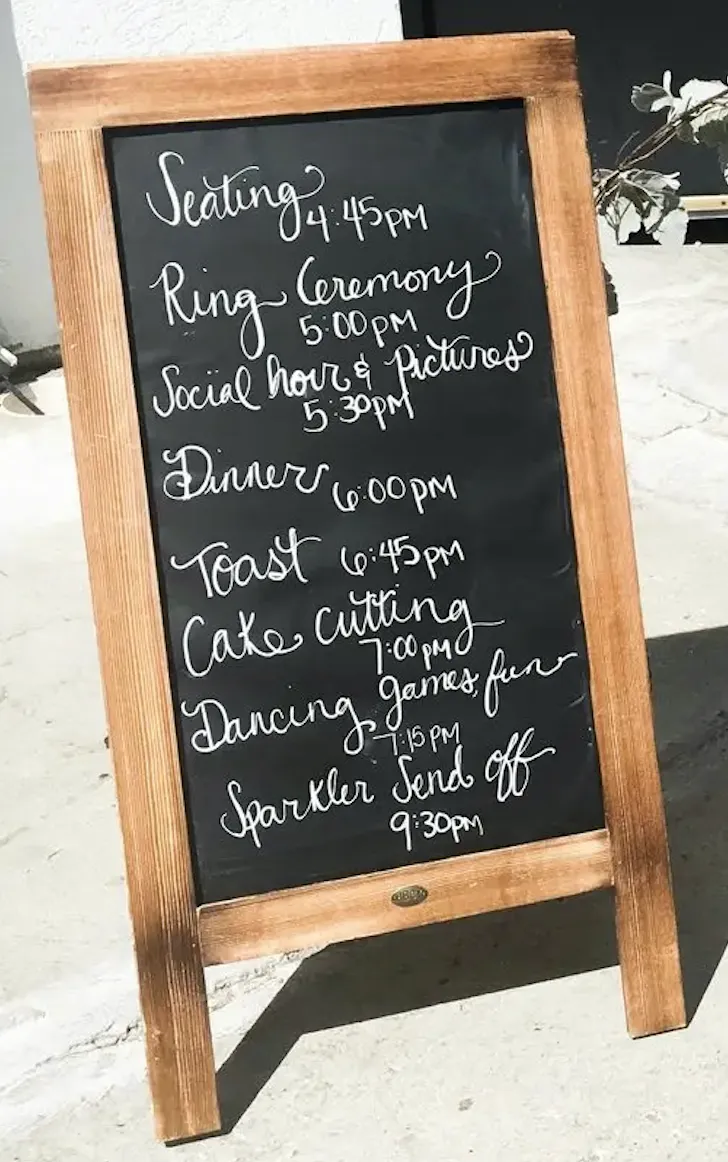 Seating
4:45pm
Ring Ceremony
5:00pm
Social hour & Pictures
5:30pm
Dinner 6:00pm
Toast 6:45pm
Cake cutting
7:00pm
Dancing, games, fun
7:15pm
Sparkler Send off
9:30pm